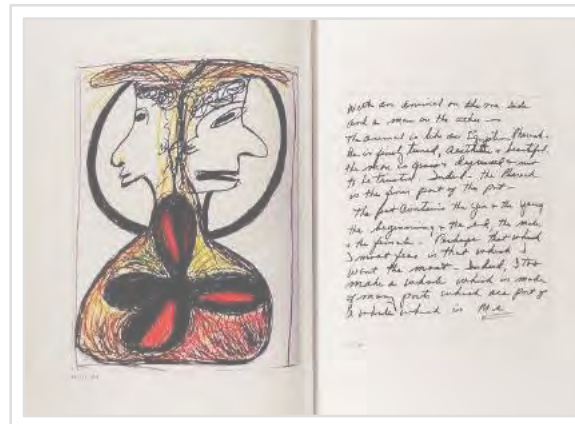 With an animal on the one side
and a man on the other —
The animal is like an Egyptian Pharoah.
He is finely tuned, Aesthetic & beautiful.
The man is gross & disguised & not
to be trusted. Indeed. The Pharoah
is the finer part of the pot —
The pot contains the yin & the yang
the beginning & the end, the male
& the female. Perhaps that which
I most fear is that which I
want the most. Indeed, I too
make a whole which is made
of many parts which are part of
a whole which is Me